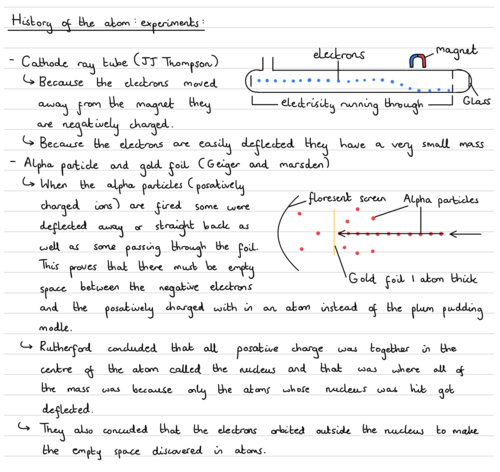 History of the atom : experiments :
- Cathode ray tube (JJ Thompson)
↳ Because the electrons moved
away from the magnet they
are negatively charged.
electrons
magnet
electrisity running through
Glass
↳ Because the electrons are easily deflected they have a very small mass
- Alpha particle and gold foil (Geiger and marsden)
↳ When the alpha particles (posatively
charged ions) are fired some were
deflected away or straight back as
well as some passing through the foil.
This proves that there must be empty
space between the negative electrons
floresent screen
Alpha particles
Gold foil 1 atom thick
and the posatively charged with in an atom instead of the plum pudding
modle.
↳ Rutherford concluded that all posative charge was together in the
centre of the atom called the nucleus and that was where all of
the mass was because only the atoms whose nucleus was hit got
deflected.
↳ They also concuded that the electrons orbited outside the nucleus to make
the empty space discovered in atoms.